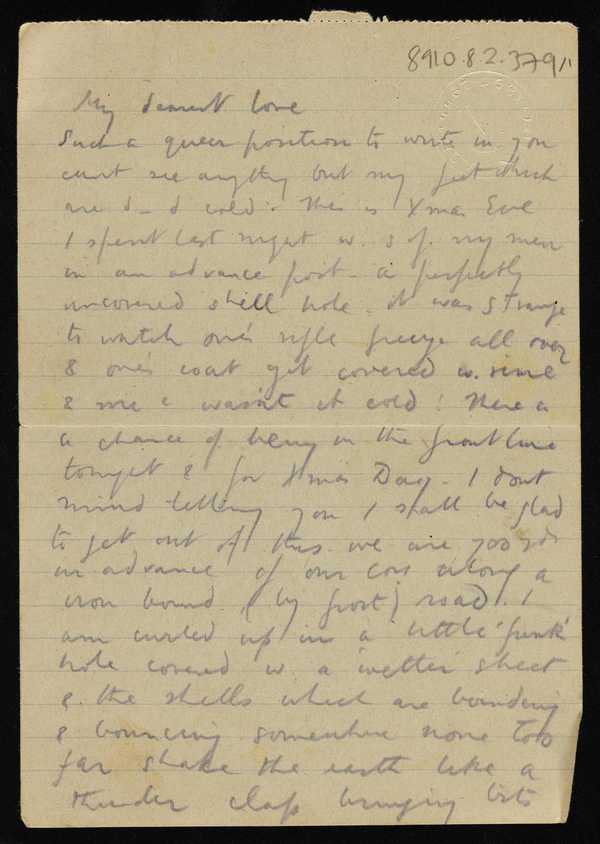 8910.8.2.379/1
My dearest love
Such a queer position to write in you
can't see anything but my feet which
are d_d cold. This is Xmas Eve
I spent last night w. 3 of my men
in an advance post - a perfectly
uncovered shell hole. it was strange
to watch one's rifle freeze all over
& one's coat get covered w. rime
& wasn't it cold! There is
a chance of being in the front line
tonight & for Xmas Day. I don't
mind telling you I shall be glad
to get out of this. we are 700 yds
in advance of our Coy along a
iron bound (by frost) road. I
am curled up in a little 'funk'
hole covered w. a wetter sheet
& the shells which are bounding
& bouncing somewhere none too
far shake the earth like a
thunder clap bringing bits